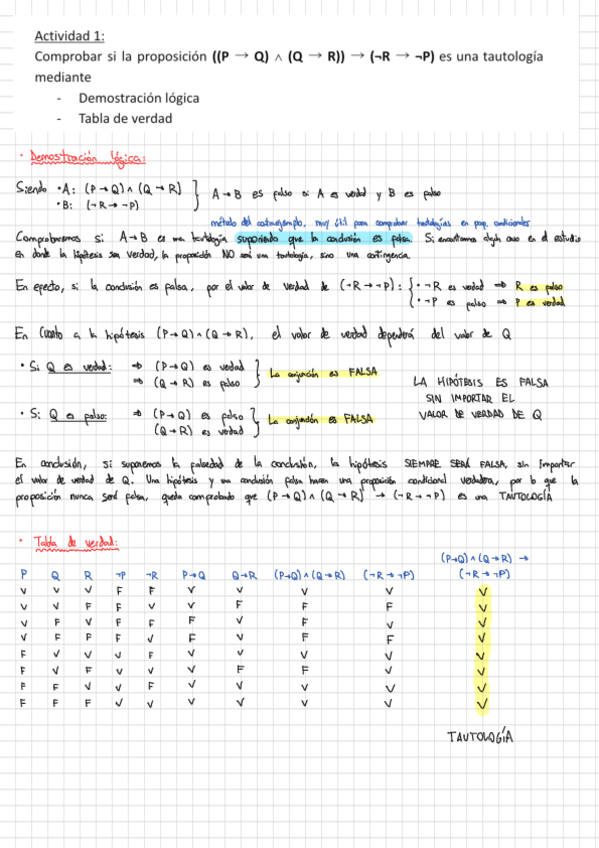 Actividad 1:
Comprobar si la proposición ((P → Q) ∧ (Q → R)) → (¬R → ¬P) es una tautología
mediante
- Demostración lógica
- Tabla de verdad
• Demostración lógica:
Siendo • A: (P → Q) ∧ (Q → R) } A → B es falso si A es verdad y B es falso
• B: (¬R → ¬P)
método del contraejemplo, muy útil para comprobar tautologías en prop. condicionales
Comprobaremos si A → B es una tautología suponiendo que la conclusión es falsa. Si encontramos algún caso en el estudio
en donde la hipótesis sea verdad, la proposición NO será una tautología, sino una contingencia.
En efecto, si la conclusión es falsa, por el valor de verdad de (¬R → ¬P): { • ¬R es verdad ⇒ R es falso
• ¬P es falso ⇒ P es verdad
En cuanto a la hipótesis (P → Q) ∧ (Q → R), el valor de verdad dependerá del valor de Q
• Si Q es verdad: ⇒ (P → Q) es verdad } La conjunción es FALSA
⇒ (Q → R) es falso
LA HIPÓTESIS ES FALSA
SIN IMPORTAR EL
VALOR DE VERDAD DE Q
• Si Q es falso: ⇒ (P → Q) es falso } La conjunción es FALSA
(Q → R) es verdad
En conclusión, si suponemos la falsedad de la conclusión, la hipótesis SIEMPRE SERÁ FALSA, sin importar
el valor de verdad de Q. Una hipótesis y una conclusión falsa hacen una proposición condicional verdadera, por lo que la
proposición nunca será falsa, queda comprobado que (P → Q) ∧ (Q → R) → (¬R → ¬P) es una TAUTOLOGÍA
• Tabla de verdad:
(P→Q) ∧ (Q→R) →
P Q R ¬P ¬R P→Q Q→R (P→Q) ∧ (Q→R) (¬R → ¬P) (¬R → ¬P)
V V V F F V V V V V
V V F F V V F F F V
V F V F F F V F V V
V F F F V F V F F V
F V V V F V V V V V
F V F V V V F F V V
F F V V F V V V V V
F F F V V V V V V V
TAUTOLOGÍA